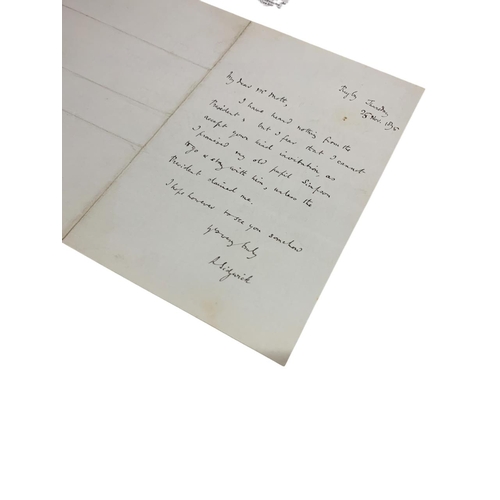 Rugby Tuesday
Nov. 1875
My Dear Mr Mott,
I have heard nothing from the
President & but I fear that I cannot
accept your kind invitation, as
I promised my old pupil Simpson
to go & stay with him, unless the
President claimed me.
I hope however to see you somehow
Yrs very truly
A Sidgwick